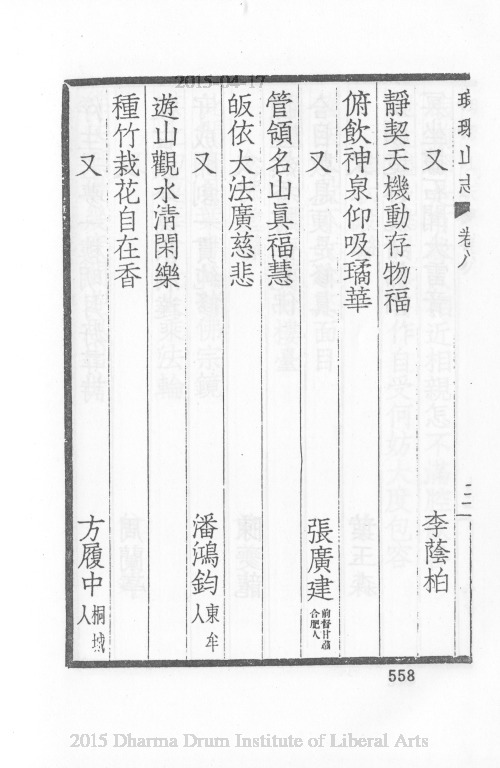 2015-04-17
琅琊山志 卷八
又 李蔭柏
靜契天機動存物福
俯飲神泉仰吸璚華
又 張廣建 前督甘肅合肥人
管領名山眞福慧
皈依大法廣慈悲
又 潘鴻鈞 東牟人
遊山觀水淸閑樂
種竹栽花自在香
又 方履中 桐城人
558
2015 Dharma Drum Institute of Liberal Arts